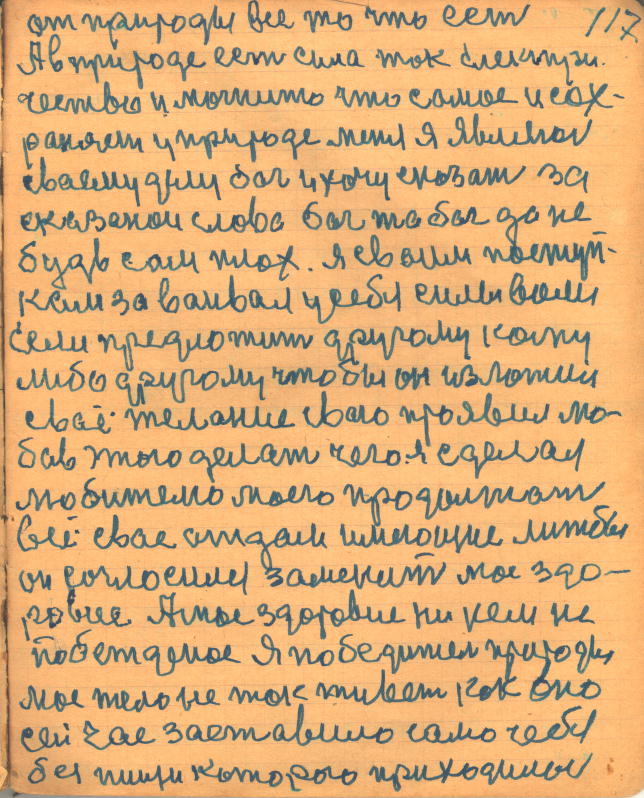 от природы все то что сеть 117
А в природе есть сила ток електри.
чества и магнито что самое и сох-
раняет у природе меня я являюсь
сваему делу бог и хочу сказать за
сказаное слово бог та бог да не
будь сам плох. я своим поступ-
ком за ваивал у себя силы воли
если предложит другому кому
либо другому чтобы он изложил
сваё желание свою проявил лю-
бов этого делат чего я сделал
любителю моего продолжат
всё свае отдал имеющие лишбы
он согласился заменить мое здо-
ровие А мое здоровие ни кем не
побежденое Я победител природы
мое тело не так живет как оно
сей час заставило само себя
без пищи которого приходилос